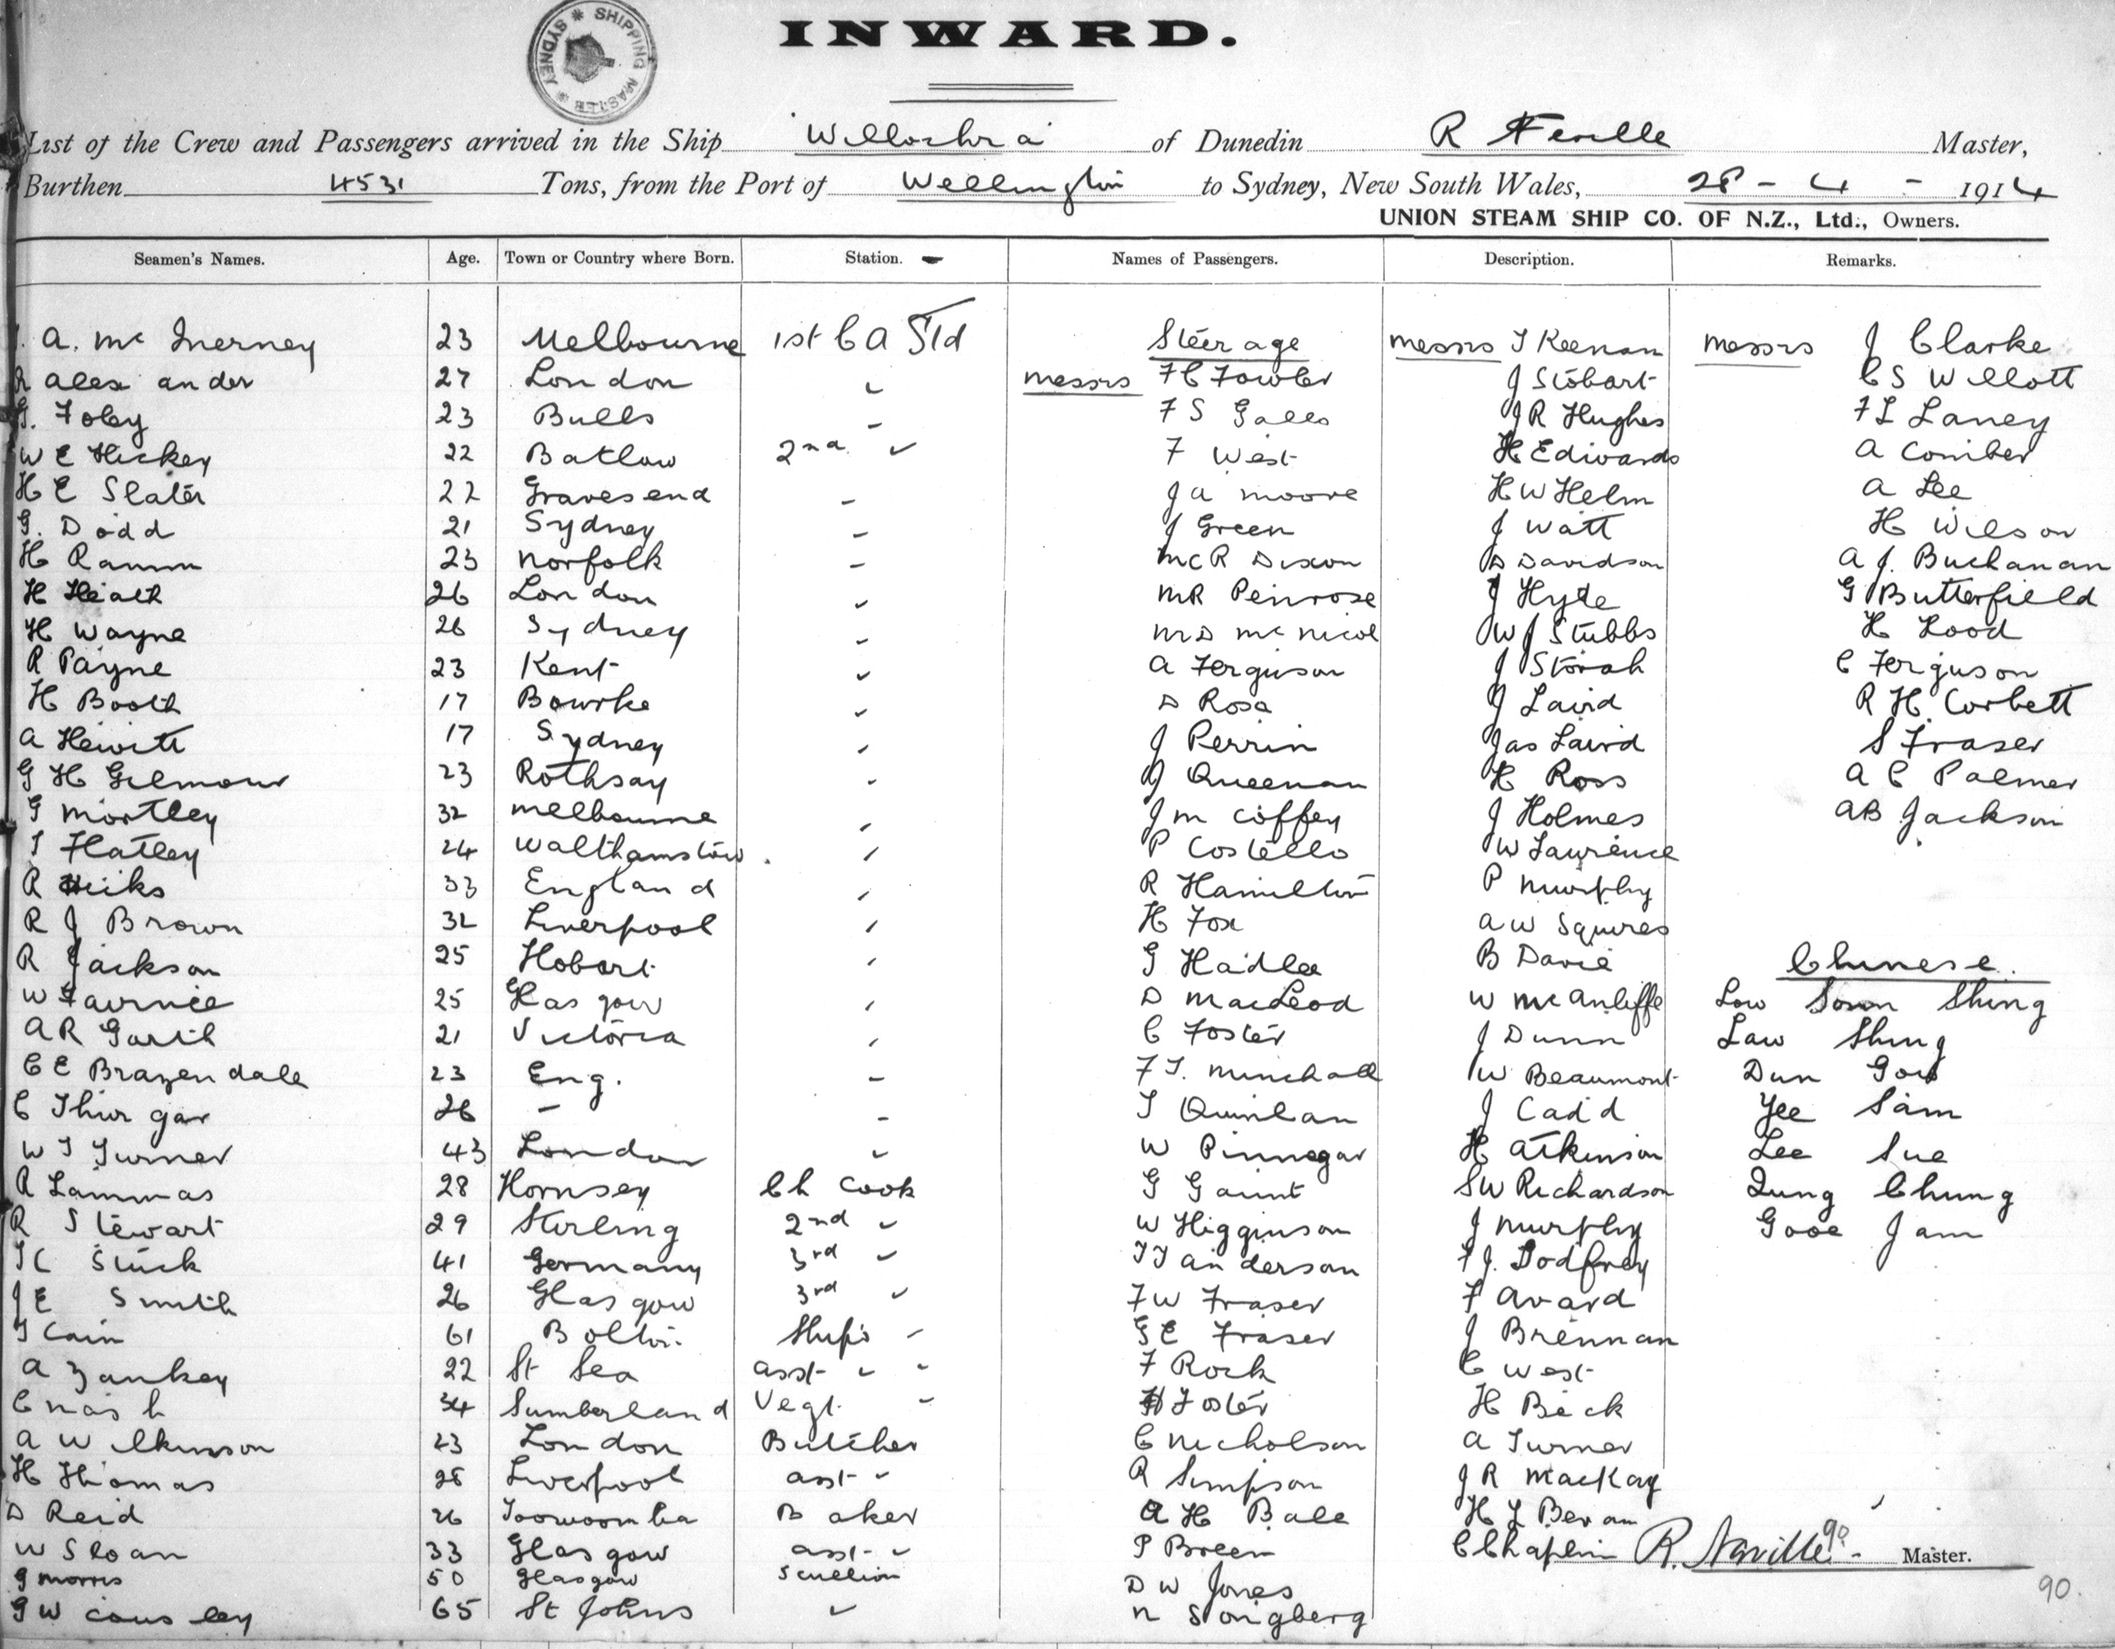 SHIPPING MASTER * SYDNEY *
INWARD.
List of the Crew and Passengers arrived in the Ship Willochra of Dunedin R Neville Master,
Burthen 4531 Tons, from the Port of Wellington to Sydney, New South Wales, 28 - 4 - 1914
UNION STEAM SHIP CO. OF N.Z., Ltd., Owners.
Seamen's Names. Age. Town or Country where Born. Station. Names of Passengers. Description. Remarks.
A. Mc Inerney 23 Melbourne 1st C A Std Steerage messrs T Keenan messrs J Clarke
R Alexander 27 London messrs F C Fowler J Stobart C S Willott
G. Foley 23 Bulls F S Galls J R Hughes F L Laney
W E Hickey 22 Batlow 2nd F West H Edwards A Comber
H E Slater 22 Gravesend J A Moore H W Helm A Lee
G. Dodd 21 Sydney J Green J Watt H Wilson
H Ramm 23 Norfolk McR Dixon D Davidson A J. Buchanan
H Heath 26 London MR Penrose J Hyde G Butterfield
H Wayne 26 Sydney McNicol W J Stubbs H Hood
R Payne 23 Kent A Ferguson J Storah C Ferguson
H Booth 17 Bourke D Rosa J Laird R H Corbett
A Hewitt 17 Sydney J Perrin Jas Laird S Fraser
G H Gilmour 23 Rothsay J Queenan H Ross A C Palmer
G Mortley 32 Melbourne J M Coffey J Holmes A B Jackson
T Flatley 24 Walthamstow P Costello W Lawrence
R 33 England R Hamilton P Murphy
R J Brown 32 Liverpool H Fox A W Squires
R Jackson 25 Hobart G Hadlee B Davie Chinese.
W 25 Glasgow D MacLeod W McAnliffe Low Soon Shing
A R Garth 21 Victoria C Foster J Dunn Law Shing
C E Brazendale 23 Eng. F T. Minchall W Beaumont Dun Gow
C Thurgar 26 - T Quinlan J Cadd Yee Sam
W T Turner 43 London W Pinnegar H Atkinson Lee Sue
R Lammas 28 Hornsey Ch Cook G Gaunt S W Richardson Chung
R Stewart 29 Stirling 2nd W Higginson J Murphy Gooe Jam
Stuck 41 Germany 3rd T J Anderson F J. Godfrey
J E Smith 26 Glasgow 3rd F W Fraser F Avard
T Cain 61 Bolton Ship's G E Fraser J Brennan
A Zankey 22 St Sea asst F Rock C West
C Nash 34 Sumberland Vegt. H Foster H Beck
A Wilkinson 23 London Butcher C Nicholson A Turner
H Thomas 28 Liverpool asst R Simpson J R MacKay
D Reid 26 Toowoomba Baker A H Bale H L Bevan
W Sloan 33 Glasgow asst P Breen C Chaplin R. Neville 90 Master.
G Morris 50 Glasgow Scullion D W Jones 90.
G W Cousley 65 St Johns N Songberg